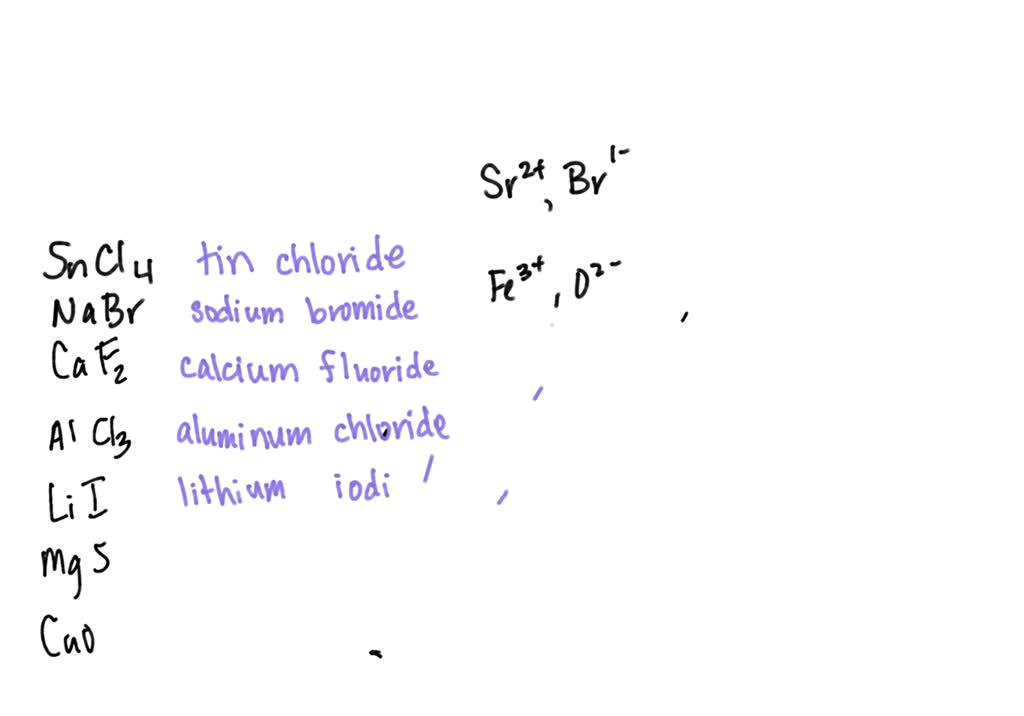 Sr²⁺, Br¹⁻
SnCl₄ tin chloride
Fe³⁺, O²⁻
NaBr sodium bromide
CaF₂ calcium fluoride
AlCl₃ aluminum chloride
LiI lithium iodi
MgS
CuO